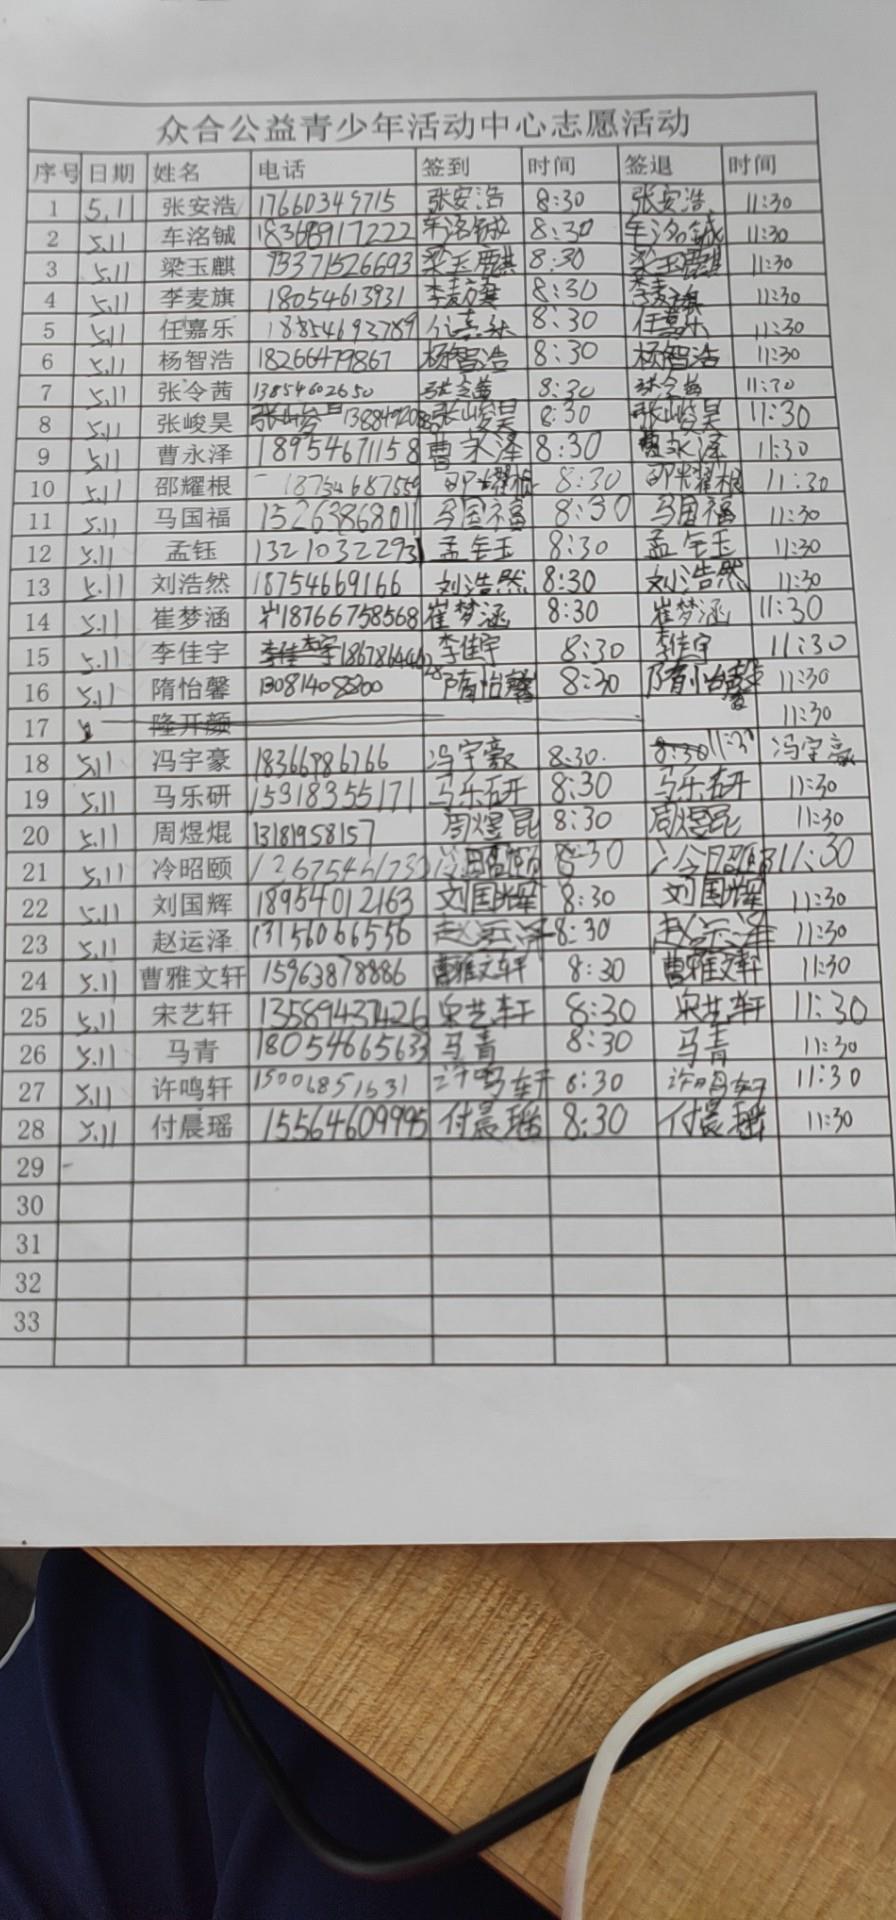 众合公益青少年活动中心志愿活动
序号 日期 姓名 电话 签到 时间 签退 时间
1 5.11 张安浩 张安浩 8:30 张安浩 11:30
2 5.11 车洺铖 18368917222 车洺铖 8:30 车洺铖 11:30
3 5.11 梁玉麒 13371526693 梁玉麒 8:30 梁玉麒 11:30
4 5.11 李麦旗 18054613931 李麦旗 8:30 李麦旗 11:30
5 5.11 任嘉乐 18854693789 8:30 任嘉乐 11:30
6 5.11 杨智浩 18266479867 杨智浩 8:30 杨智浩 11:30
7 5.11 张令茜 13854602650 张令茜 8:30 张令茜 11:30
8 5.11 张峻昊 张峻昊 8:30 张峻昊 11:30
9 5.11 曹永泽 18954671158 曹永泽 8:30 曹永泽 11:30
10 5.11 邵耀根 18754687559 邵耀根 8:30 邵耀根 11:30
11 5.11 马国福 15263868011 马国福 8:30 马国福 11:30
12 5.11 孟钰 13210322931 孟钰 8:30 孟钰 11:30
13 5.11 刘浩然 18754669166 刘浩然 8:30 刘浩然 11:30
14 5.11 崔梦涵 18766758568 崔梦涵 8:30 崔梦涵 11:30
15 5.11 李佳宇 李佳宇 8:30 李佳宇 11:30
16 5.11 隋怡馨 13081408800 隋怡馨 8:30 隋怡馨 11:30
17 隆开颜 11:30
18 5.11 冯宇豪 18366986766 冯宇豪 8:30. 8:30 11:30 冯宇豪
19 5.11 马乐研 15318355171 马乐研 8:30 马乐研 11:30
20 5.11 周煜焜 13181958157 周煜昆 8:30 周煜昆 11:30
21 5.11 冷昭颐 冷昭颐 8:30 冷昭颐 11:30
22 5.11 刘国辉 18954012163 刘国辉 8:30 刘国辉 11:30
23 5.11 赵运泽 13156066556 赵运泽 8:30 赵运泽 11:30
24 5.11 曹雅文轩 15963878886 曹雅文轩 8:30 曹雅文轩 11:30
25 5.11 宋艺轩 13589437426 宋艺轩 8:30 宋艺轩 11:30
26 5.11 马青 18054665633 马青 8:30 马青 11:30
27 5.11 许鸣轩 15006851631 许鸣轩 8:30 许鸣轩 11:30
28 5.11 付晨瑶 15564609995 付晨瑶 8:30 付晨瑶 11:30
29
30
31
32
33